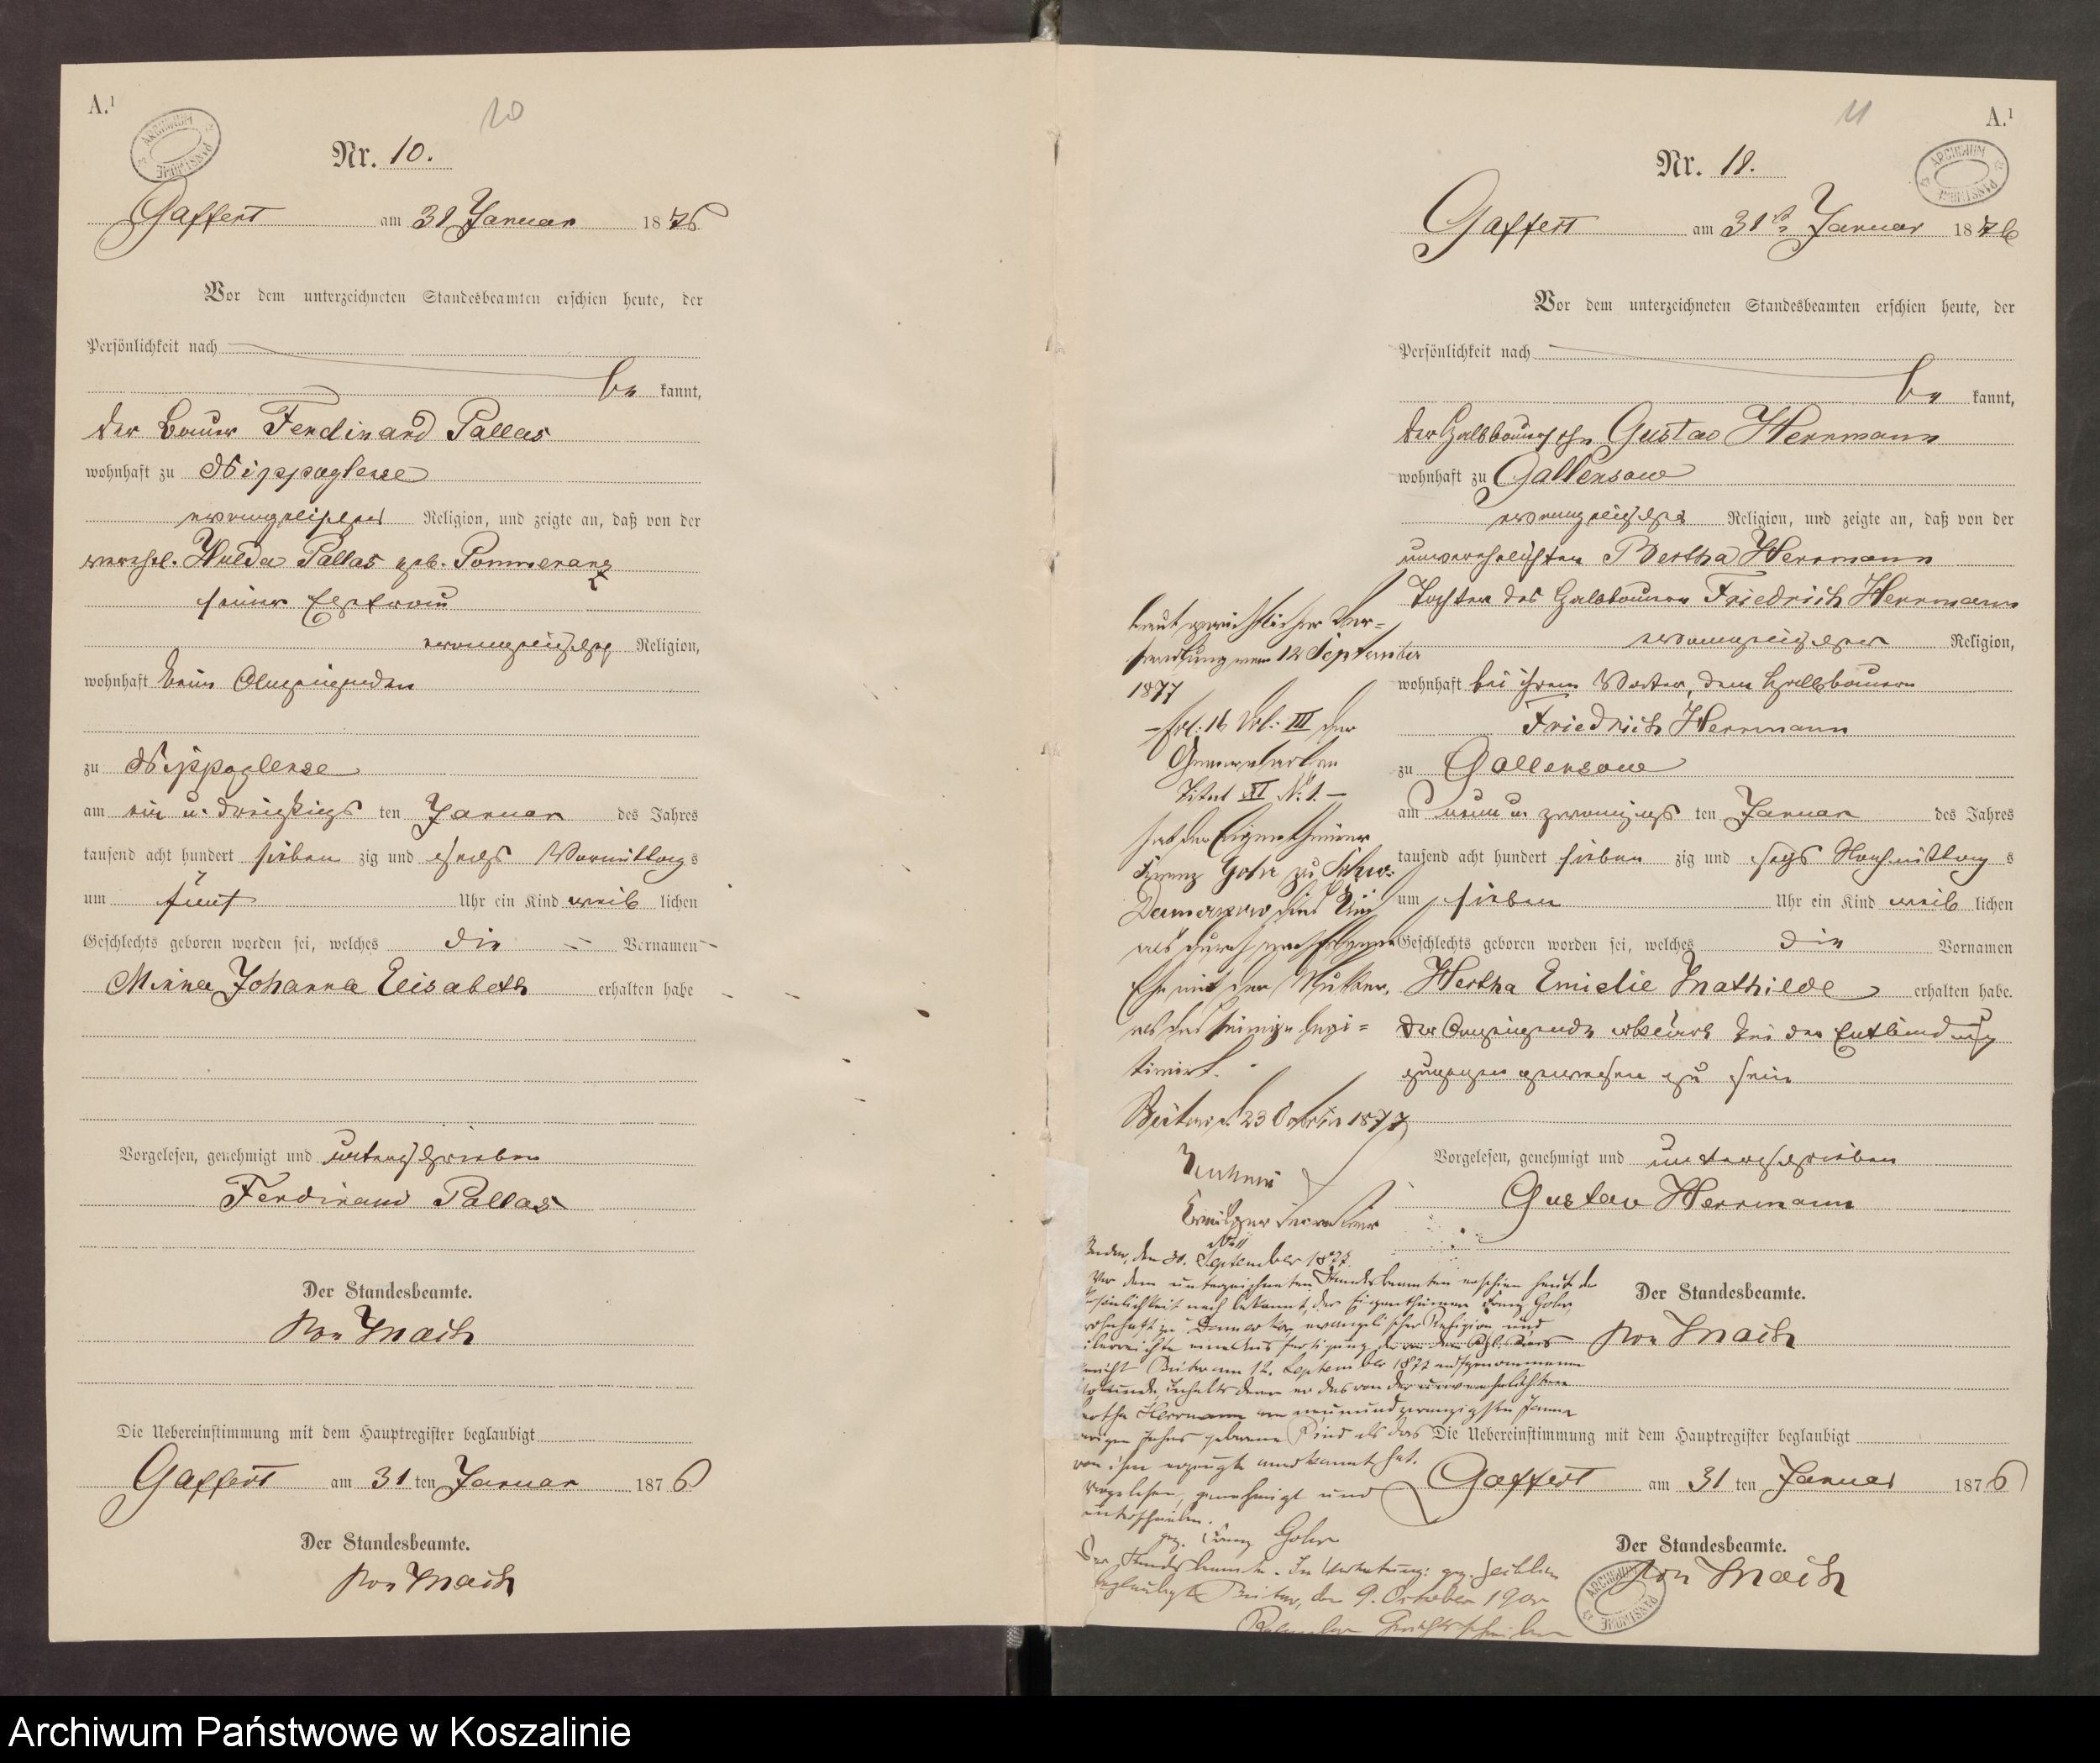 A.¹
10
ARCHIWUM PAŃSTWOWE
Nr. 10.
Gaffert am 31 Januar 1876
Vor dem unterzeichneten Standesbeamten erschien heute, der
Persönlichkeit nach
be kannt,
der Bauer Ferdinand Pallas
wohnhaft zu Nippoglense
evangelischer Religion, und zeigte an, daß von der
verehel. Hulda Pallas geb. Pommeranz
seiner Ehefrau
evangelischer Religion,
wohnhaft beim Anzeigenden
zu Nippoglense
am ein u. dreißigs ten Januar des Jahres
tausend acht hundert sieben zig und sechs Vormittag s
um fünf Uhr ein Kind weib lichen
Geschlechts geboren worden sei, welches die Vornamen
Minna Johanna Elisabeth erhalten habe
Vorgelesen, genehmigt und unterschrieben
Ferdinand Pallas
Der Standesbeamte.
von Mach
Die Uebereinstimmung mit dem Hauptregister beglaubigt
Gaffert am 31 ten Januar 1876
Der Standesbeamte.
von Mach
11
A.¹
ARCHIWUM PAŃSTWOWE
Nr. 11.
Gaffert am 31 Januar 1876
Vor dem unterzeichneten Standesbeamten erschien heute, der
Persönlichkeit nach
be kannt,
der Halbbauer Gustav Herrmann
wohnhaft zu Gallensow
evangelischer Religion, und zeigte an, daß von der
unverehelichten Bertha Herrmann
Tochter des Halbbauern Friedrich Herrmann
evangelischer Religion,
wohnhaft bei ihrem Vater, dem Halbbauern
Friedrich Herrmann
zu Gallensow
am neun u. zwanzigs ten Januar des Jahres
tausend acht hundert sieben zig und sechs Nachmittag s
um sieben Uhr ein Kind weib lichen
Geschlechts geboren worden sei, welches die Vornamen
Hertha Emielie Mathilde erhalten habe.
Der Anzeigende erklärt bei der Entbindung
zugegen gewesen zu sein
Vorgelesen, genehmigt und unterschrieben
Gustav Herrmann
Der Standesbeamte.
von Mach
Die Uebereinstimmung mit dem Hauptregister beglaubigt
Gaffert am 31 ten Januar 1876
Der Standesbeamte.
von Mach
ARCHIWUM PAŃSTWOWE
Laut gerichtlicher Ver=
handlung vom 12 September
1877
Vol: III der
Generalakten
Titel XI №: 1. —
hat der Eigenthümer
Franz Gohr zu
Damerkow das Kind
als durch nachfolgende
Ehe mit der Mutter,
als das seinige legi=
timirt.
Bütow d. 23 October 1877
den 30. September 1877.
Vor dem unterzeichneten Standesbeamten erschien heute der
Persönlichkeit nach bekannt, der Eigenthümer Franz Gohr
wohnhaft zu Damerkow evangelischer Religion und
überreichte eine Ausfertigung der von dem Kgl. Kreis
gericht Bütow am 12. September 1877 aufgenommenen
Urkunde, Inhalts deren er das von der unverehelichten
Bertha Herrmann am neunundzwanzigsten Januar
vorigen Jahres geborene Kind als das
von ihm erzeugte anerkannt hat.
Vorgelesen, genehmigt und
unterschrieben.
gez. Franz Gohr
Der Standesbeamte. In Vertretung: gez.
beglaubigt Bütow, den 9. October
Gerichtsschreiber
Archiwum Państwowe w Koszalinie